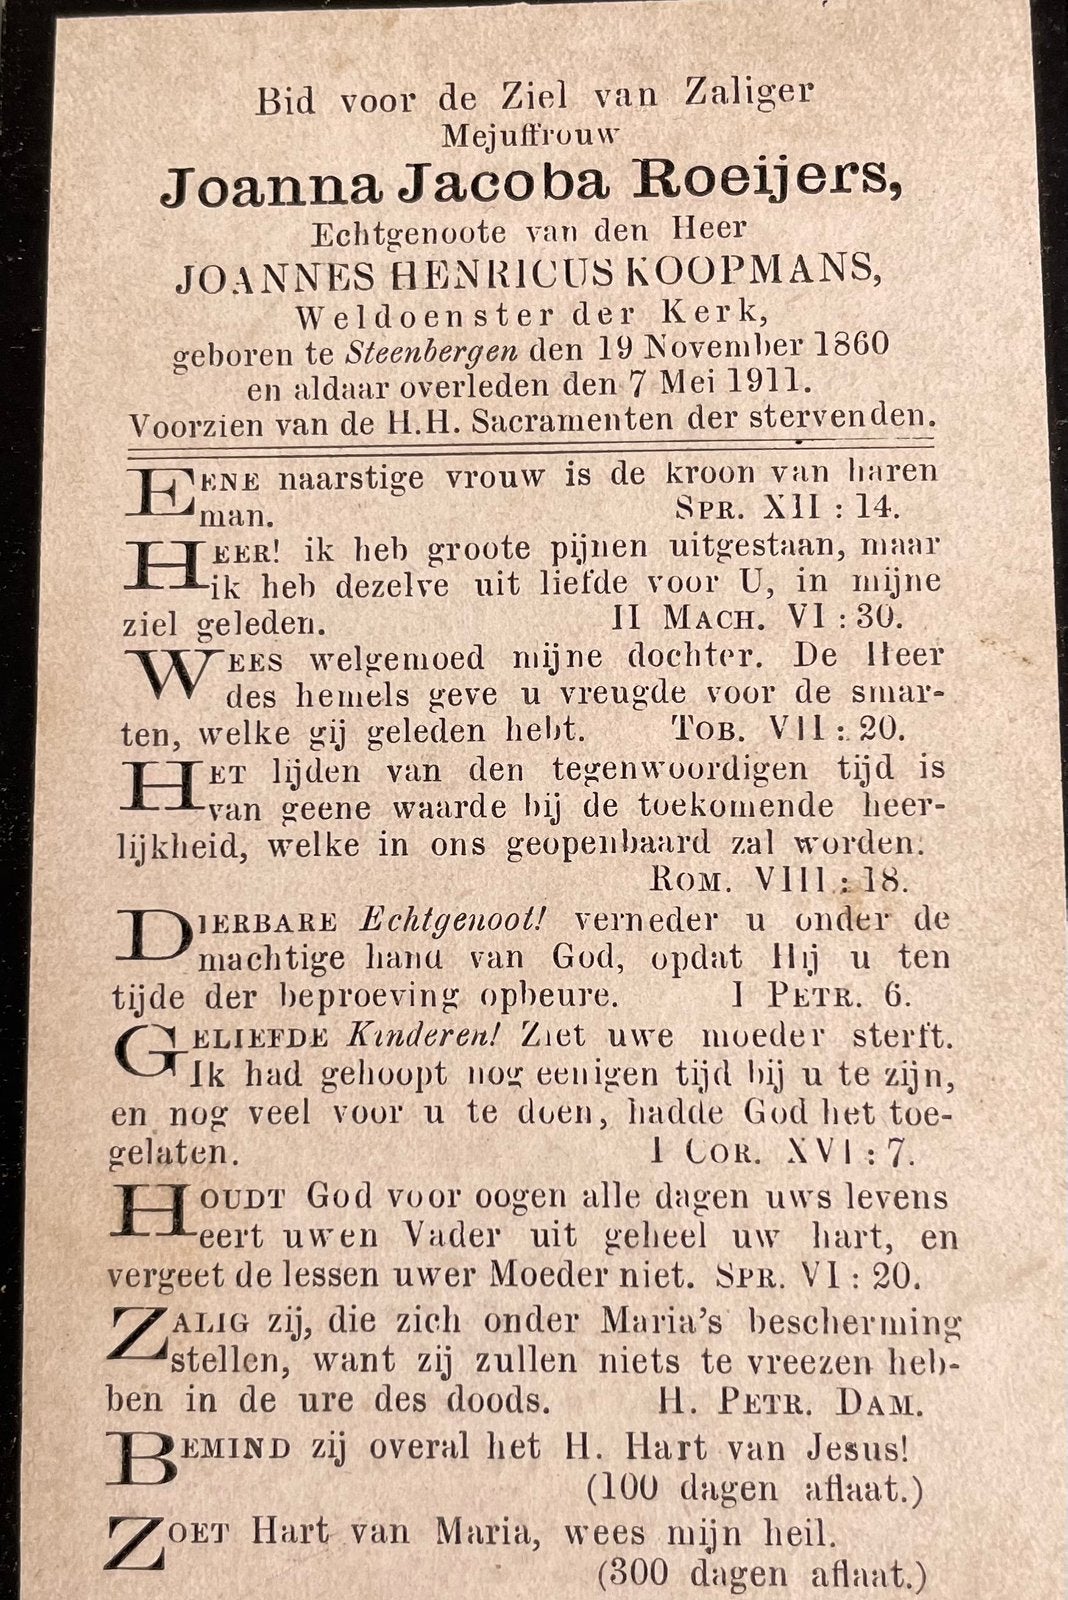 Bid voor de Ziel van Zaliger
Mejuffrouw
Joanna Jacoba Roeijers,
Echtgenoote van den Heer
JOANNES HENRICUS KOOPMANS,
Weldoenster der Kerk,
geboren te Steenbergen den 19 November 1860
en aldaar overleden den 7 Mei 1911.
Voorzien van de H.H. Sacramenten der stervenden.
EENE naarstige vrouw is de kroon van haren
man. SPR. XII : 14.
HEER! ik heb groote pijnen uitgestaan, maar
ik heb dezelve uit liefde voor U, in mijne
ziel geleden. II MACH. VI : 30.
WEES welgemoed mijne dochter. De Heer
des hemels geve u vreugde voor de smar-
ten, welke gij geleden hebt. TOB. VII : 20.
HET lijden van den tegenwoordigen tijd is
van geene waarde bij de toekomende heer-
lijkheid, welke in ons geopenbaard zal worden.
ROM. VIII : 18.
DIERBARE Echtgenoot! verneder u onder de
machtige hand van God, opdat Hij u ten
tijde der beproeving opbeure. I PETR. 6.
GELIEFDE Kinderen! Ziet uwe moeder sterft.
Ik had gehoopt nog eenigen tijd bij u te zijn,
en nog veel voor u te doen, hadde God het toe-
gelaten. I COR. XVI : 7.
HOUDT God voor oogen alle dagen uws levens
eert uwen Vader uit geheel uw hart, en
vergeet de lessen uwer Moeder niet. SPR. VI : 20.
ZALIG zij, die zich onder Maria's bescherming
stellen, want zij zullen niets te vreezen heb-
ben in de ure des doods. H. PETR. DAM.
BEMIND zij overal het H. Hart van Jesus!
(100 dagen aflaat.)
ZOET Hart van Maria, wees mijn heil.
(300 dagen aflaat.)